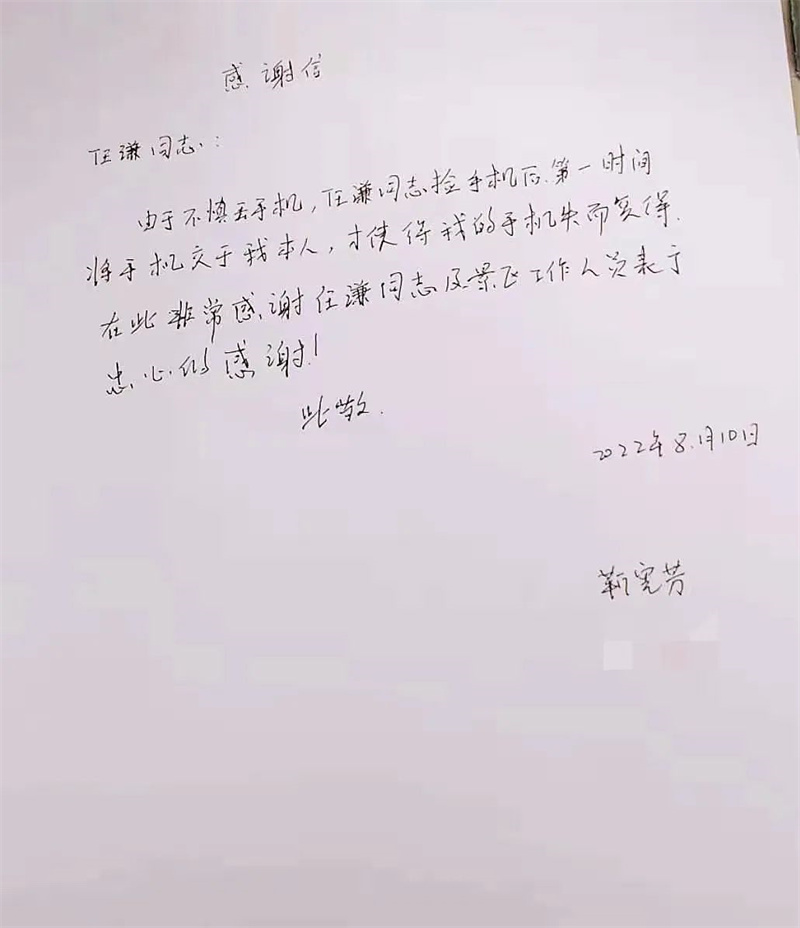 感谢信
任谦同志：
由于不慎丢手机，任谦同志捡手机后第一时间
将手机交于我本人，才使得我的手机失而复得.
在此非常感谢任谦同志及景区工作人员表于
忠心的感谢！
此致.
2022年8月10日
靳宪芳